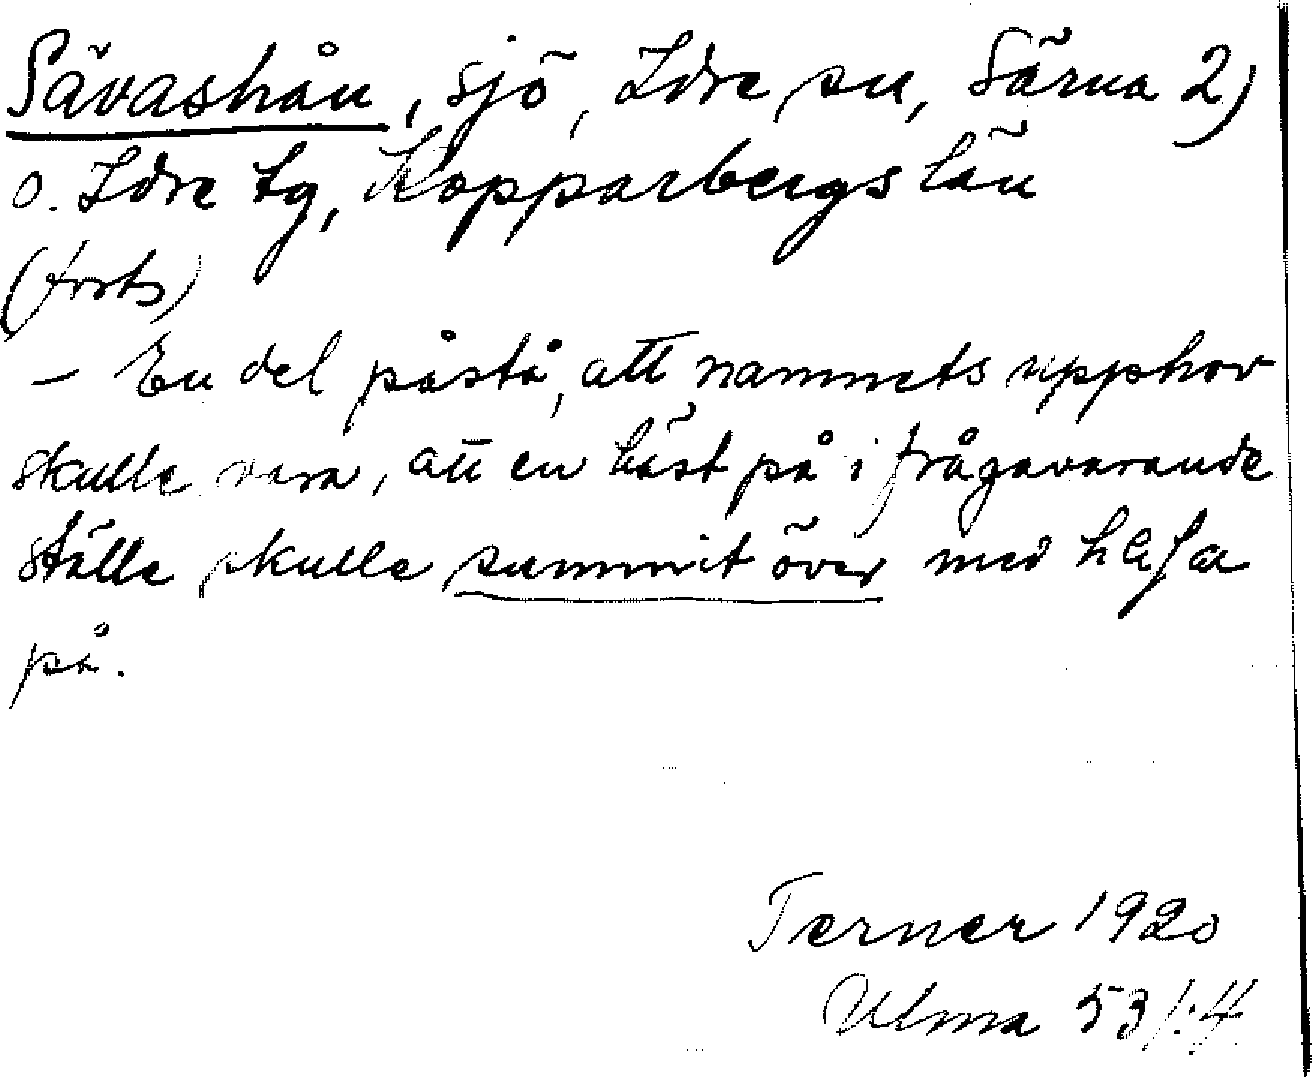 Sävashån, sjö, Idre sn, Särna 2)
o. Idre tg, Kopparbergs län
(forts)
– En del påstå, att namnets upphov
skulle vara, att en häst på i frågavarande
ställe skulle summit över med klafa
på.
Terner 1920
Ulma 531:4